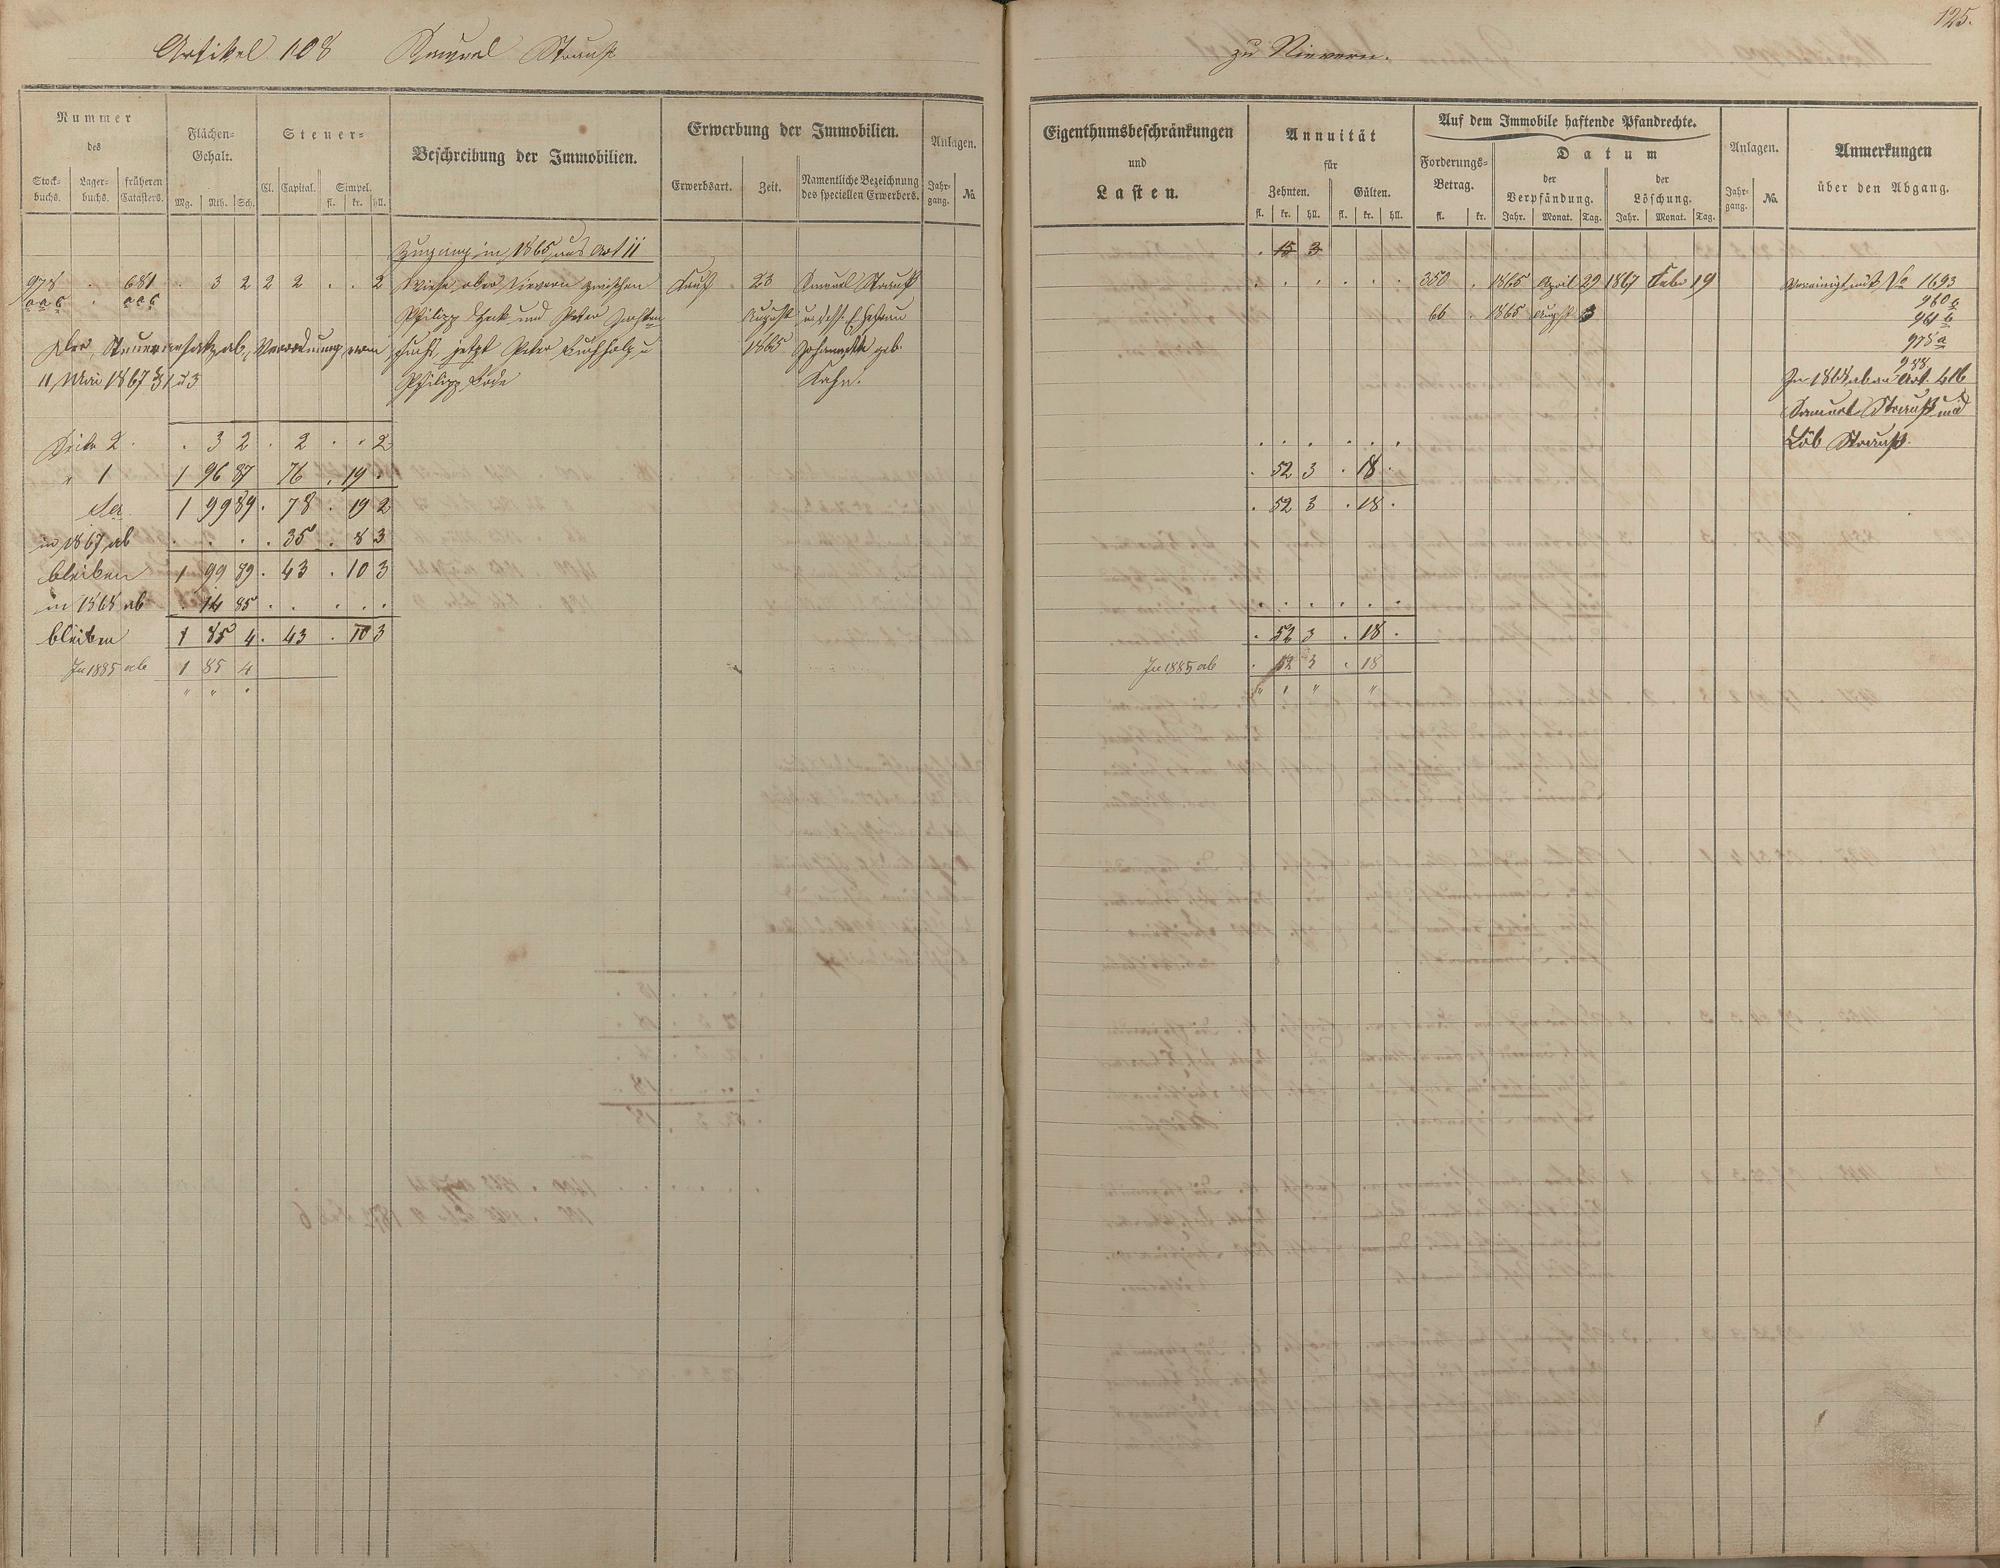 125.
Artikel 108 Samuel Strauß zu Nievern.
Nummer
des
Stock-
buchs.
Lager-
buchs.
früheren
Catasters.
Flächen-
Gehalt.
Mg. Rth. Sch.
Steuer-
Cl. Capital. Simpel.
fl. kr. hll.
Beschreibung der Immobilien.
Erwerbung der Immobilien.
Erwerbsart. Zeit.
Namentliche Bezeichnung
des speciellen Erwerbers.
Anlagen.
Jahr-
gang.
No.
Eigenthumsbeschränkungen
und
Lasten.
Annuität
für
Zehnten. Gülten.
fl. kr. hll. fl. kr. hll.
Auf dem Immobile haftende Pfandrechte.
Forderungs-
Betrag.
fl. kr.
Datum
der
Verpfändung.
Jahr. Monat. Tag.
der
Löschung.
Jahr. Monat. Tag.
Anlagen.
Jahr-
gang.
No.
Anmerkungen
über den Abgang.
Zugang in 1865 aus Art 11
15 3
978 . 681 . 3 2 2 2 . . 2 Wiese ober Nievern zwischen Kauf 23 Samuel Strauß
a a c . a a c Philipp und Peter August u. dess. Ehefrau
jetzt Peter Buchholz u 1865 geb.
11 Mai 1867 § 1 u 3 Philipp Kahn.
350 . 1865 April 29 1867 Febr 19
66 . 1865 August 3
Vereinigt mit No 1693
960 a
961 b
975 a
988
In 1868 ab an Art. 416
Samuel Strauß und
Löb Strauß.
Seite 2 . . 3 2 . 2 . . 2
" 1 1 96 87 76 . 19 . . 52 3 . 18 .
1 99 89 . 78 . 19 2 . 52 3 . 18 .
in 1867 ab . . . . 35 . 8 3
bleiben 1 99 89 . 43 . 10 3
in 1868 ab . 14 85 . . . . .
bleiben 1 85 4 . 43 . 10 3 . 52 3 . 18 .
In 1885 ab 1 85 4 In 1885 ab . 52 3 . 18